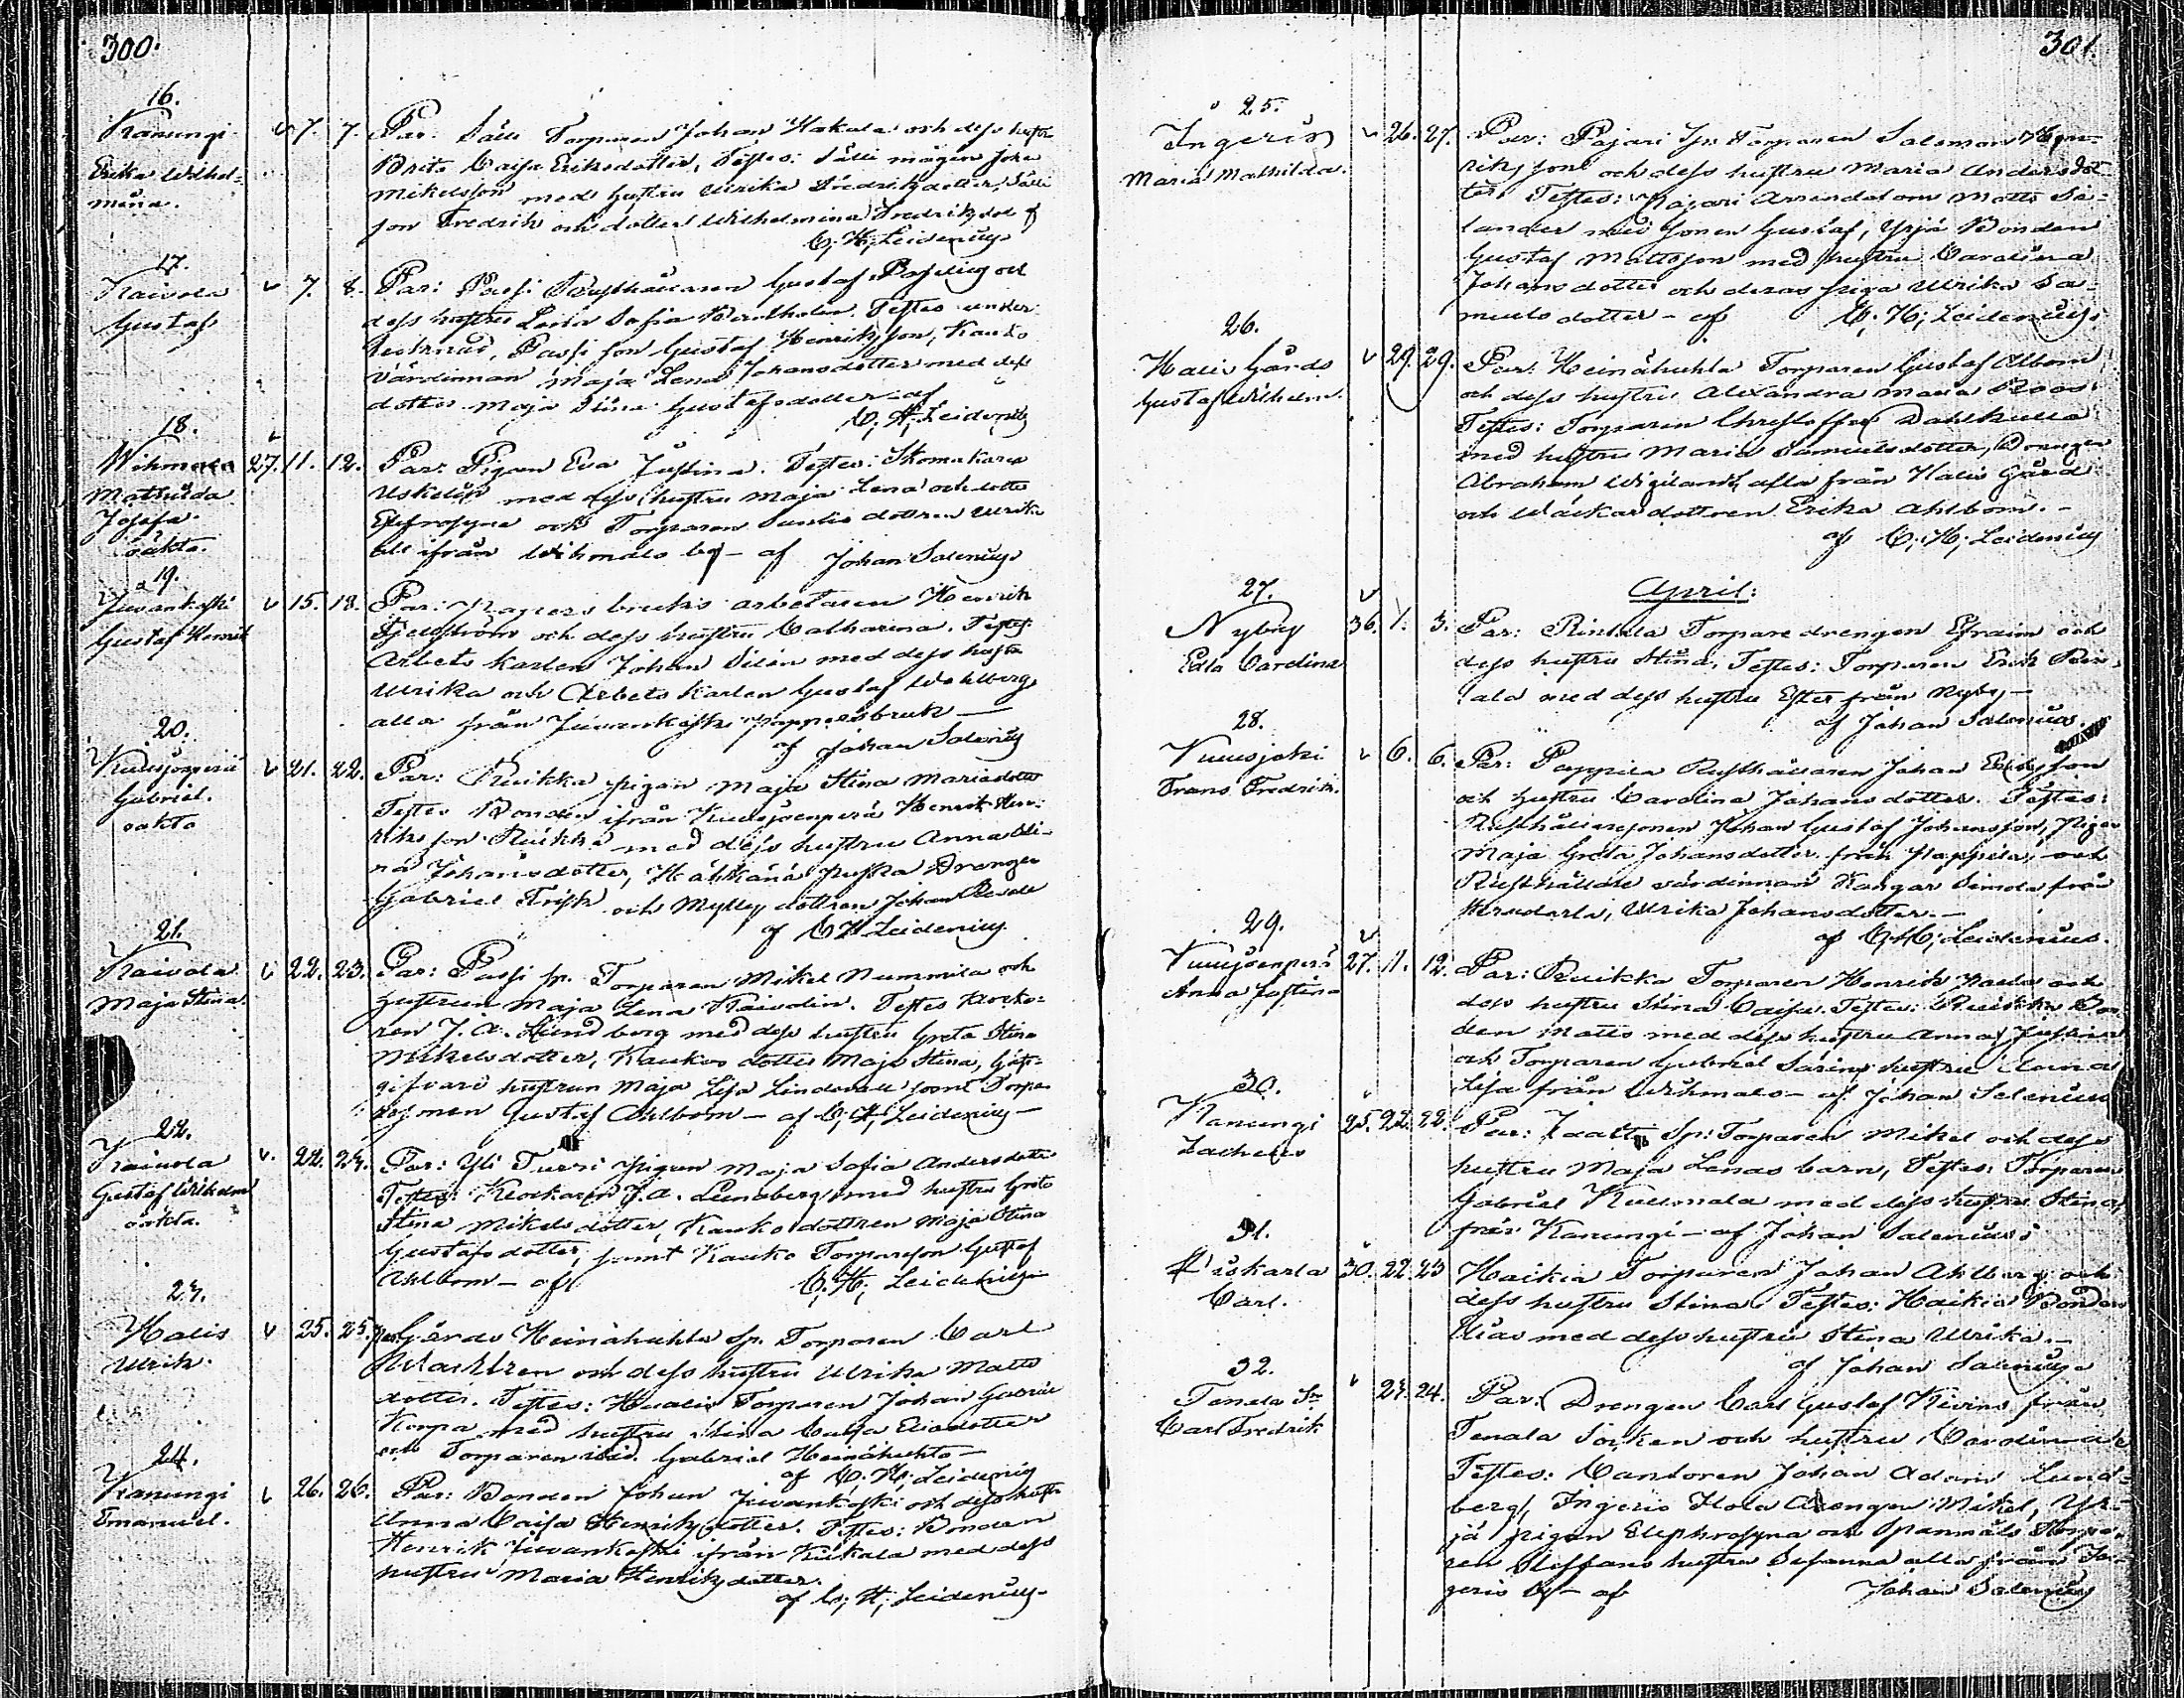 300.
16.
Kanungi
Erika Wilhel-
mina.
7. 7. Par: Sälli Torparen Johan Hakala och dess hustru
Brita Caisa Eriksdotter, Testes: Sälli mågen Johan
Mikelsson med hustru Ulrika Fredriksdotter, Sälli
son Fredrik och dotter Wilhelmina Fredriksdot. af
C. H. Leidenius
17.
Kaivola
Gustaf
7. 8. Par: Passi Rusthållaren Gustaf och
dess hustru Lena Sofia. Testes under-
tecknad, Passi son Gustaf Henriksson, Kauko
värdinnan Maja Lena Johansdotter med dess
dotter Maja Stina Gustafsdotter af
C. H. Leidenius
18.
Wihmalo
Mathilda
Josefa
oäkta.
27. 11. 12. Par: Pigan Eva Justina. Testes: Skomakaren
Uskelin med dess hustru Maja Lena och dotter
Efrosyna och Torparen dottren Ulrika
all ifrån Wihmalo by - af Johan Salenius
19.
Juvankoski
Gustaf Henrik
15. 18. Par: Pappers bruks arbetaren Henrik
och dess hustru Catharina. Testes
Arbets karlen Johan Silén med dess hustru
Ulrika och Arbets karlen Gustaf Wahlberg
alla från Juvankoski pappersbruk -
af Johan Salenius
20.
Kuusjoenperä
Gabriel.
oäkta
21. 22. Par: Ruikka pigan Maja Stina Mariadotter
Testes Bonden ifrån Kuusjoenperä Henrik Hen-
riksson Ruikka med dess hustru Anna Uli-
na Johansdotter, Drengen
Gabriel Frisk och dottren Johan
af C H Leidenius
21.
Kaivola
Maja Stina.
22. 23. Par: Passi sp. Torparen Mikel Nummila och
hustrun Maja Lena. Testes Klocka-
ren J. A. Lundberg med dess hustru Greta Stina
Mikelsdotter, Kaukos dotter Maja Stina, Gäst-
gifvare hustrun Maja Lisa Lindevall samt Torpa-
re sonen Gustaf Ahlbom - af C. H. Leidenius -
22.
Kaivola
Gustaf Wilhelm
oäkta.
22. 24. Par: Yli Turri pigan Maja Sofia Andersdotter
Testes: Klockaren J. A. Lundberg med hustru Greta
Stina Mikelsdotter, Kauko dottren Maja Stina
Gustafsdotter, samt Kauko Torpareson Gustaf
Ahlbom - af C. H. Leidenius
23.
Halis
Ulrik.
25. 25. Par: Gårds Heinähuhta sp. Torparen Carl
och dess hustru Ulrika Matts
dotter. Testes: Torparen Johan Gabriel
Korpa med hustru Stina Caisa Eliasdotter
och Torparen ibid. Gabriel Heinähuhta -
af C. H. Leidenius
24.
Kanungi
Emanuel.
26. 26. Par: Bonden Johan Juvankoski och dess hustru
Anna Caisa Henriksdotter. Testes: Bonden
Henrik Juvankoski ifrån Kukala med dess
hustru Maria Henriksdotter.
af C. H. Leidenius -
301.
25.
Ingeris
Maria Mathilda.
26. 27. Par: Pajari Sp: Torparen Salomon Hen-
riksson och dess hustru Maria Andersdot-
ter. Testes: Pajari Arrendatorn Matts Sa-
lander med sonen Gustaf, Yrjä Bonden
Gustaf Mattsson med hustru Carolina
Johansdotter och deras piga Ulrika Sa-
muelsdotter - af C. H. Leidenius
26.
Halis Gårds
Gustaf Wilhelm.
29. 29. Par: Heinähuhta Torparen Gustaf Albom
och dess hustru Alexandra Maria Roos.
Testes: Torparen Christoffer Dahlkulla
med hustru Maria Samuelsdotter, Drengen
Abraham Wigilant, alla från Halis Gård
och dottren Erika Ahlbom. -
af C. H. Leidenius
April:
27.
Nyby
Edla Carolina
36. 1. 3. Par: Rintala Torpare drengen Efraim och
dess hustru Stina, Testes: Torparen Erik Rin-
tala med dess hustru Ester från Nyby -
af Johan Salenius.
28.
Kuusjoki
Frans Fredrik.
6. 6. Par: Pappila Rusthållaren Johan Eriksson
och hustru Carolina Johansdotter. Testes:
Rusthållaresonen Johan Gustaf Johansson, Pigan
Maja Greta Johansdotter från Pappila, och
Rusthållare värdinnan Kangar Simola från
Ulrika Johansdotter. -
af C. H. Leidenius.
29.
Kuusjoenperä
Anna Justina
27. 11. 12. Par: Ruikka Torparen Henrik och
dess hustru Stina Caisa. Testes: Ruikka Bon-
den Matts med dess hustru Anna Justina
och Torparen Gabriel Sarins hustru Anna
Lisa från Wihmalo - af Johan Salenius
30.
Kanungi
Zacheus
25. 22. 22. Par: Sp: Torparen Mikel och dess
hustru Maja Lenas barn, Testes: Torparen
Gabriel Kuusmala med dess hustru Stina,
från Kanungi - af Johan Salenius
31.
Carl.
30. 22. 23 Haikia Torparen Johan Ahlberg och
dess hustru Stina. Testes: Haikia Bonden
Elias med dess hustru Stina Ulrika. -
af Johan Salenius
32.
Tenala Sn
Carl Fredrik
23. 24. Par: Drengen Carl Gustaf från
Tenala Socken och hustru Carolina
Testes: Cantoren Johan Adam Lund-
berg, Ingeris Drengen Mikel, Yr-
jä pigan Elephrosyna och Spannmåls Torpa-
ren Steffans hustru Susanna alla från In-
geris by - af Johan Salenius